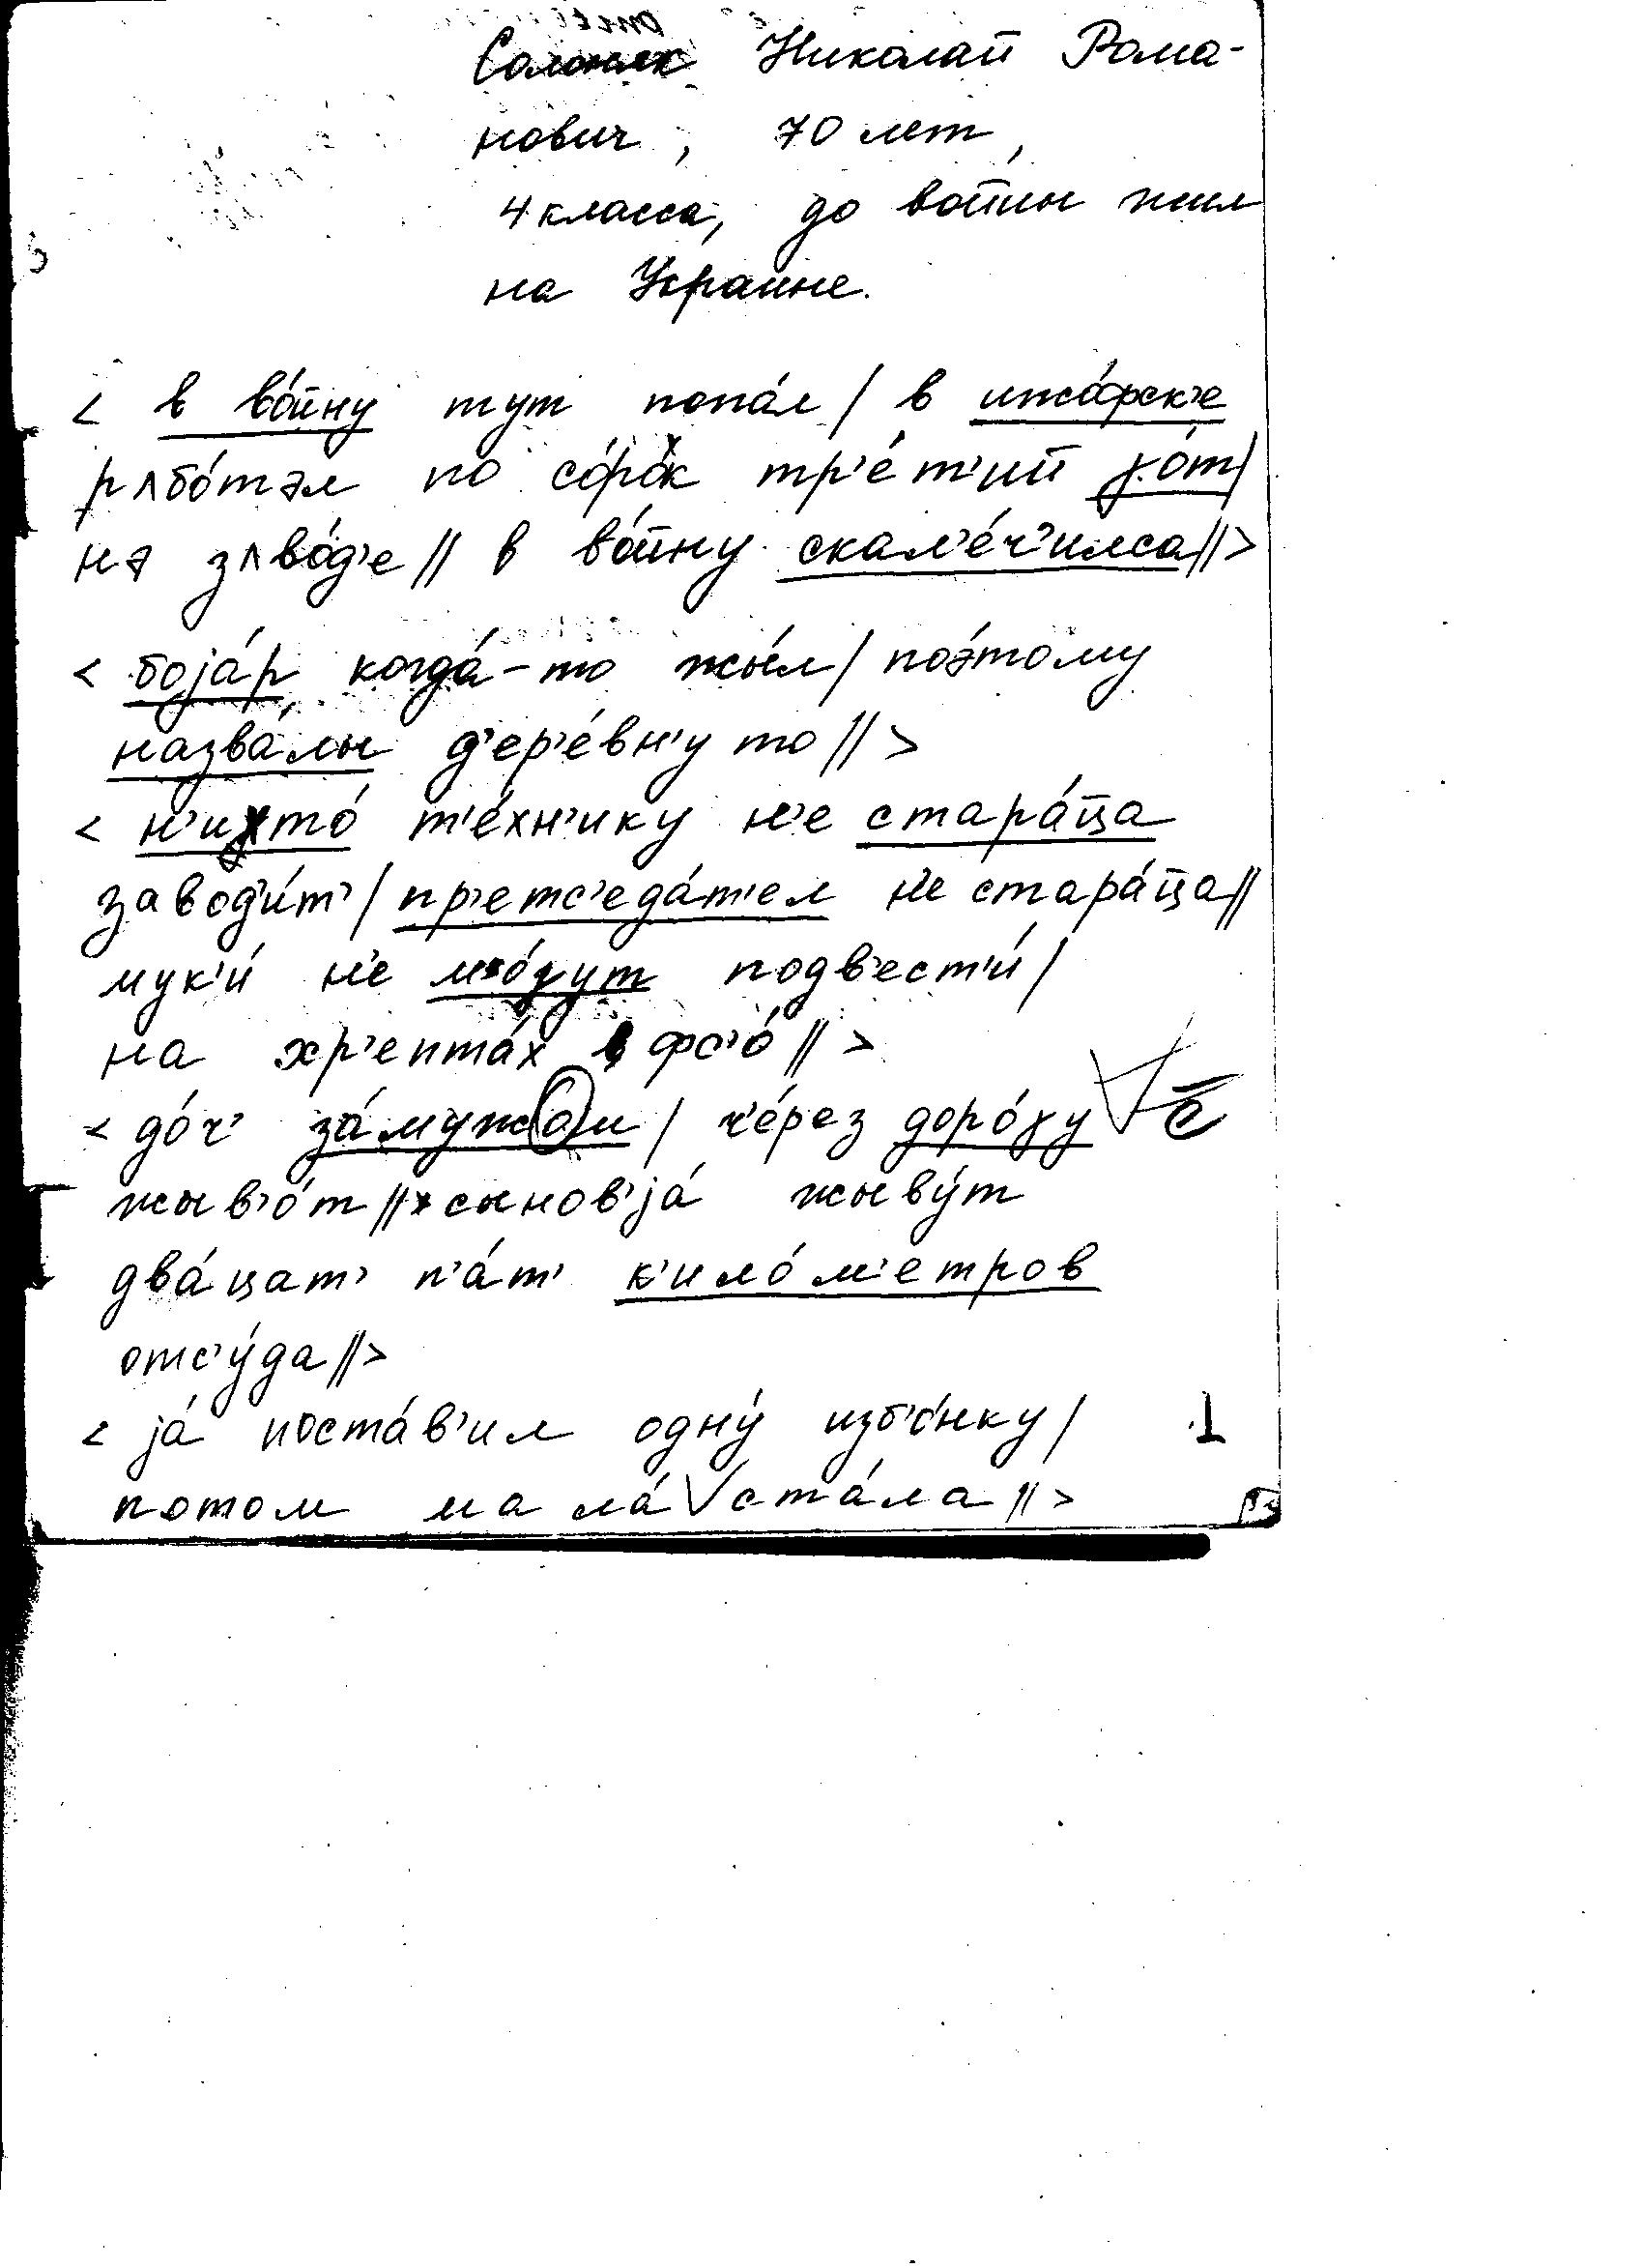 Солоняк Николай Рома-
нович, 70 лет,
4 класса, до войны жил
на Украине.
< в во́йну тут попа́л / в ижо́рск'е
рʌбо́тəл по со́рок тр'е́т'ий γо́т /
нə зʌво́д'е // в во́йну скал'е́ч'илса // >
< боjа́р когда́-то жы́л / поэ́тому
назва́лы д'ер'е́вн'у то // >
< н'ихто́ т'е́хн'ику н'е стара́йца
завод'и́т' / пр'етс'еда́т'ел н'е стара́йца //
мук'и́ н'е мо́γут подв'ест'и́ /
на хр'епта́х фс'о́ // >
< до́ч' за́мужом / ч'е́рез доро́γу
жыв'о́т // сынов'jа́ жыву́т
два́цат' п'а́т' к'ило́м'етров
отс'у́да // >
< jа́ поста́в'ил одну́ изб'о́нку / 1
потом мала́ ста́ла // >